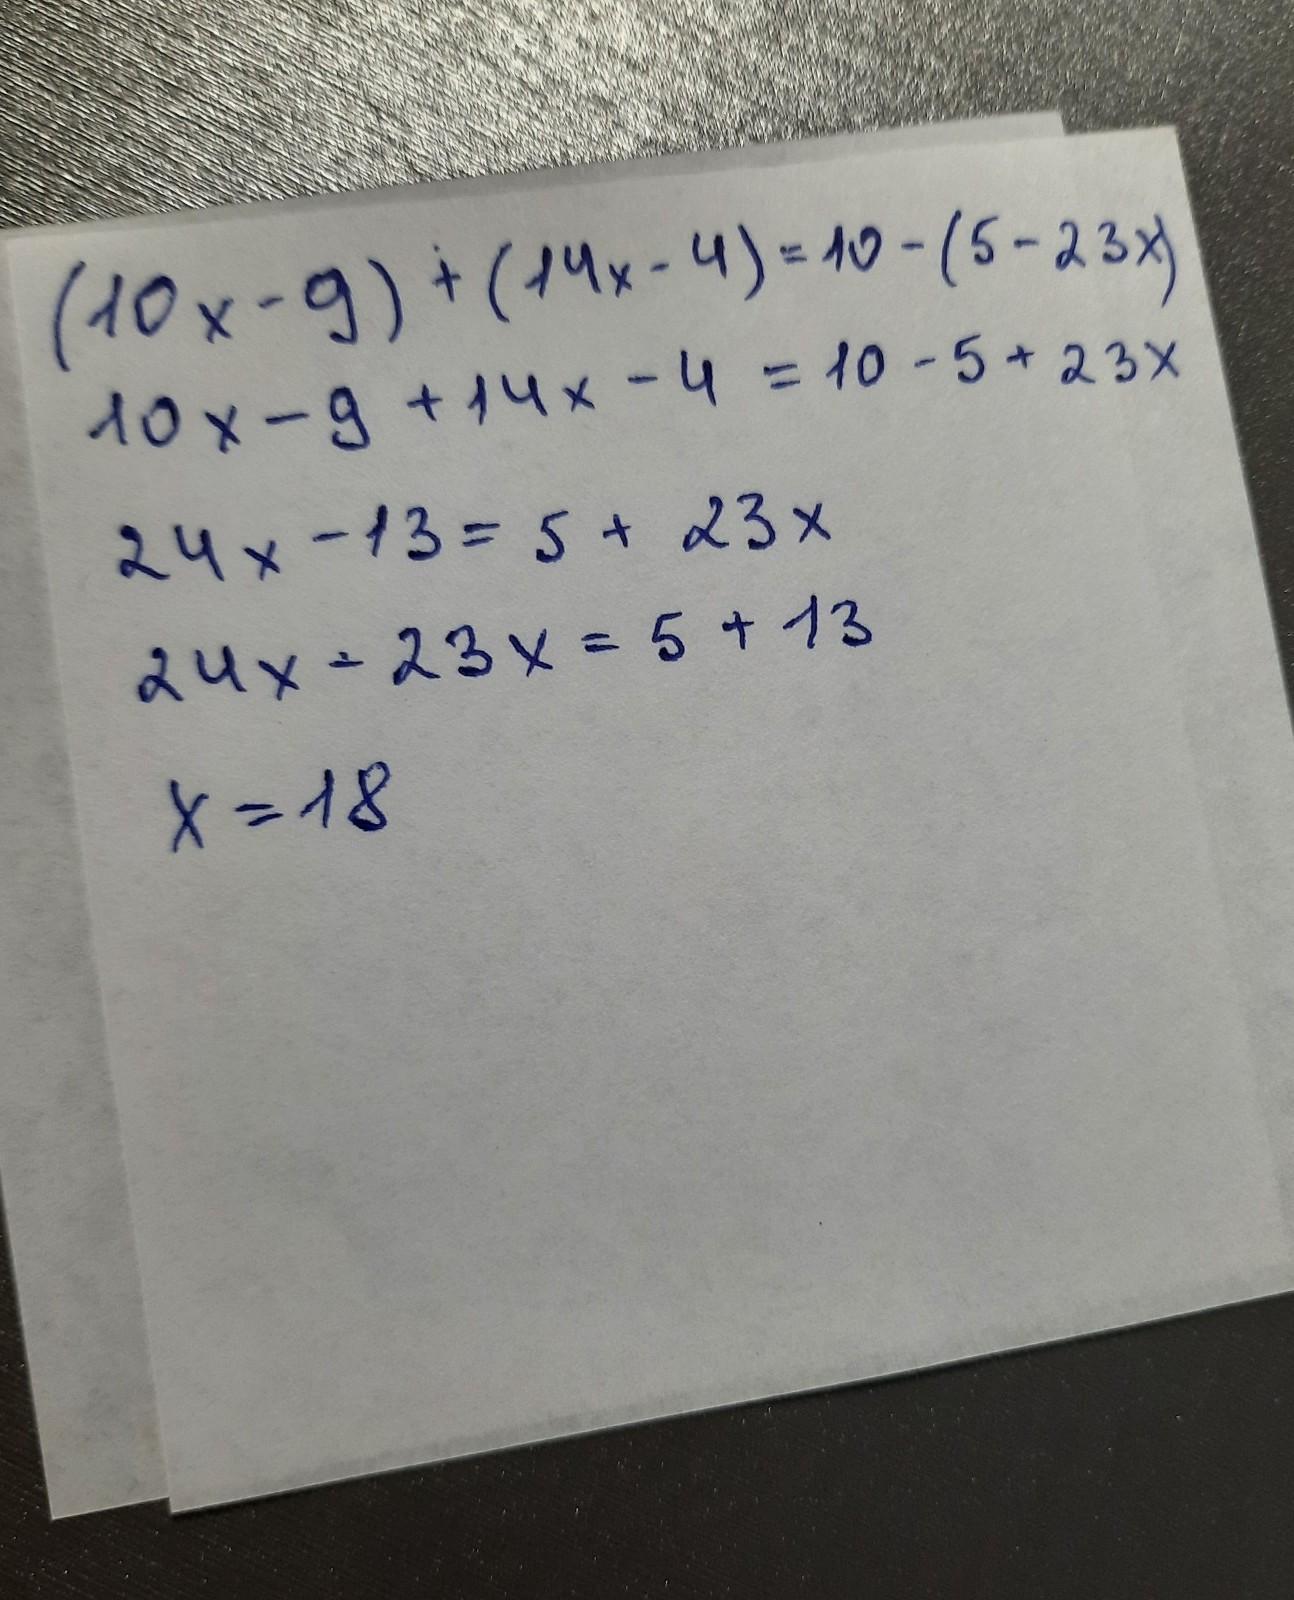 (10x - 9) + (14x - 4) = 10 - (5 - 23x)
10x - 9 + 14x - 4 = 10 - 5 + 23x
24x - 13 = 5 + 23x
24x - 23x = 5 + 13
x = 18